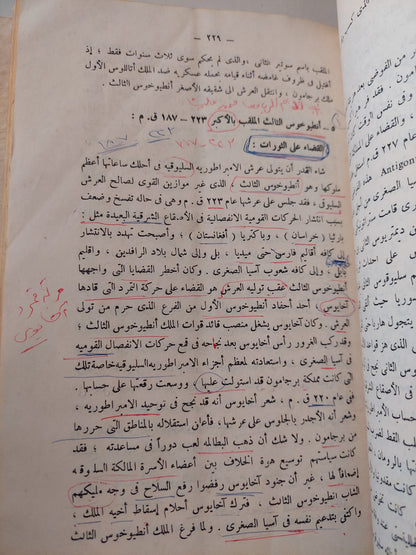 — ٢٢٦ —
الملقب باسم سوتير الثانى، والذى لم يحكم سوى ثلاث سنوات فقط ؛ إذ
أغتيل فى ظروف غامضه أثناء قيامه بحمله عسكريه ضد الملك أتاللوس الأول
ملك برجامون، وانتقل العرش الى شقيقه الأصغر أنطيوخوس الثالث
٥ - أنطيوخوس الثالث الملقب بالأكبر ٢٢٣ — ١٨٧ ق. م :
٢٢٣ ١٨٧
القضاء على الثورات :
٢٢٣ - ١٨٧
شاء القدر أن يتولى عرش الامبراطوريه السلوقيه فى أحلك ساعاتها أعظم
ملوكها وهو أنطيوخوس الثالث، الذى غير موازين القوى لصالح العرش
السلوقى، فقد جلس على العرش عام ٢٢٣ ق. م وهى فى حالة تفسخ وضعف
بسبب انتشار الحركات القومية الانفصالية فى الأصقاع الشرقية البعيدة مثل :
بارثيا ( خراسان )، وباكتريا ( أفغانستان ) ؛ وأصبحت تهدد بالانتشار
الى كافه أقاليم فارس حتى ميديا، بل والى شمال بلاد الرافدين، واقليم
بابل، والى كافه شعوب آسيا الصغرى. وكان أخطر القضايا التى واجهها
أنطيوخوس الثالث عقب توليه العرش هو القضاء على حركة التمرد التى قادها
أخايوس، أحد أحفاد أنطيوخوس الأول من الفرع الذى حرم من تولى
العرش. وكان أخايوس يشغل منصب قائد قوات الملك أنطيوخوس الثالث ؛
وقدركب الغرور رأس أخايوس بعد نجاحه فى قمع حركات الانفصال القوميه
فى آسيا الصغرى، واستعادته لمعظم أجزاء الامبراطوريه السلوقيه خاصة تلك
التى كانت مملكة برجامون قد استولت عليها، ووسعت رقعتها على حسابها.
ففى عام ٢٢٠ ق. م، شعر أخايوس أنه قد نجح فى توحيد الامبراطوريه،
وشعر أنه الأجدر بالجلوس على عرشها، فأعلن استقلاله بالمناطق التى حررها
من برجامون. ولا شك أن ذهب البطالمه لعب دوراً فى مساعدته ؛ فقد
كانت سياستهم توسيع هوة الخلاف بين أعضاء الأسرة المالكة السلوقه
اضعافا لها، غير أن جنود أخايوس رفضوا رفع السلاح فى وجه مليكهم
الشاب أنطيوخوس الثالث، فترك أخايوس أحلام إسقاط أخيه الملك،
واكتفى بتدعيم نفسه فى آسيا الصغرى. ولما فرغ الملك أنطيوخوس الثالث
حركة تمرد
أخايوس
Antigon